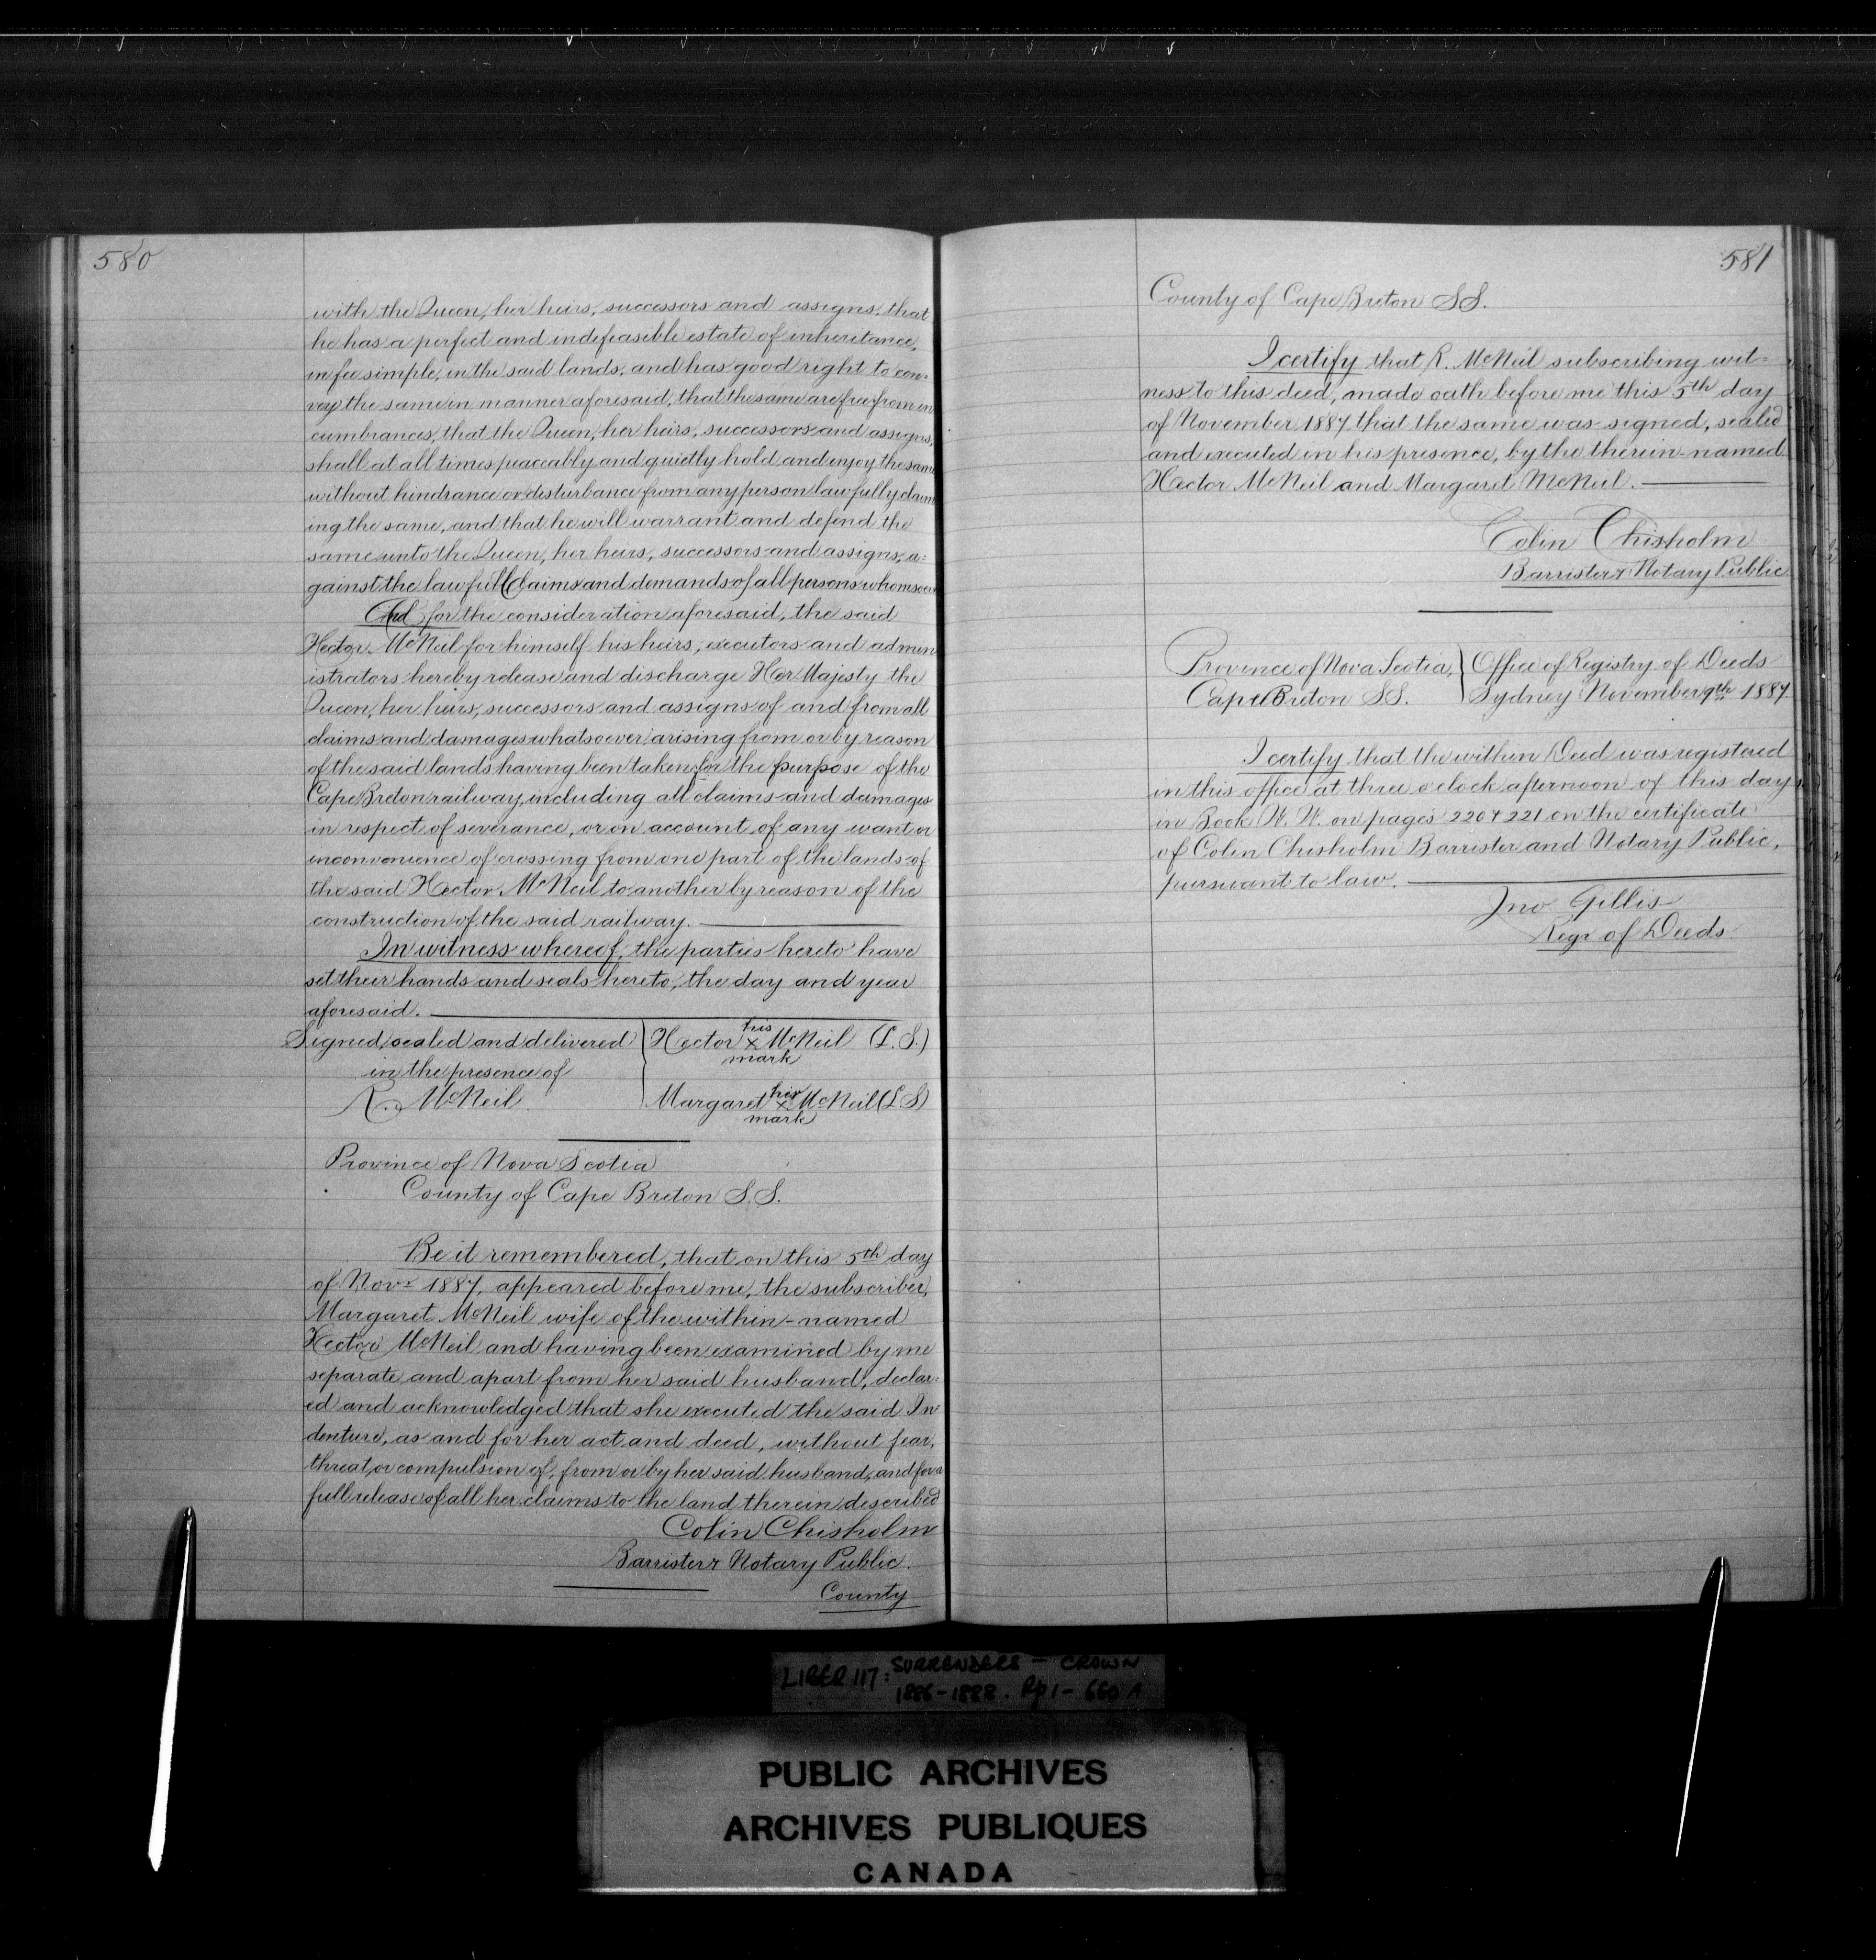 580
with the Queen, her heirs, successors and assigns, that
he has a perfect and indefeasible estate of inheritance,
in fee simple, in the said lands, and has good right to con=
vey the same in manner aforesaid, that the same are free from in
cumbrances, that the Queen, her heirs, successors and assigns,
shall at all times peaceably and quietly hold and enjoy the same
without hindrance or disturbance from any person lawfully claim
ing the same, and that he will warrant and defend the
same unto the Queen, her heirs, successors and assigns, a=
gainst the lawfull claims and demands of all persons whomsoever
And for the consideration aforesaid, the said
Hector McNeil for himself his heirs, executors and admin
istrators hereby release and discharge Her Majesty the
Queen, her heirs, successors and assigns of and from all
claims and damages whatsoever arising from or by reason
of the said lands having been taken for the purpose of the
Cape Breton railway, including all claims and damages
in respect of severance, or on account of any want or
inconvenience of crossing from one part of the lands of
the said Hector McNeil to another by reason of the
construction of the said railway.
In witness whereof, the parties hereto have
set their hands and seals hereto, the day and year
aforesaid.
Signed, sealed and delivered
in the presence of
R. McNeil
Hector his x mark McNeil (L.S.)
Margaret her x mark McNeil (L.S)
Province of Nova Scotia
County of Cape Breton S.S.
Be it remembered, that on this 5th day
of Novr 1887, appeared before me, the subscriber,
Margaret McNeil wife of the within-named
Hector McNeil and having been examined by me
separate and apart from her said husband, declar=
ed and acknowledged that she executed the said In
denture, as and for her act and deed, without fear,
threat, or compulsion of, from or by her said husband, and for a
full release of all her claims to the land therein described
Colin Chisholm
Barrister & Notary Public.
County
581
County of Cape Breton S.S.
I certify that R. McNeil subscribing wit=
ness to this deed, made oath before me this 5th day
of November 1887 that the same was signed, sealed
and executed in his presence, by the therein-named
Hector McNeil and Margaret McNeil.
Colin Chisholm
Barrister & Notary Public
Province of Nova Scotia,
Cape Breton S.S.
Office of Registry of Deeds
Sydney November 9th 1887
I certify that the within Deed was registered
in this office at three o'clock afternoon of this day,
in Book W. W. on pages 220 & 221 on the certificate
of Colin Chisholm Barrister and Notary Public,
pursuant to law.
Jno Gillis
Regr of Deeds.
LIBER 117: SURRENDERS - CROWN
1886-1888. Pp 1 - 660 A
PUBLIC ARCHIVES
ARCHIVES PUBLIQUES
CANADA